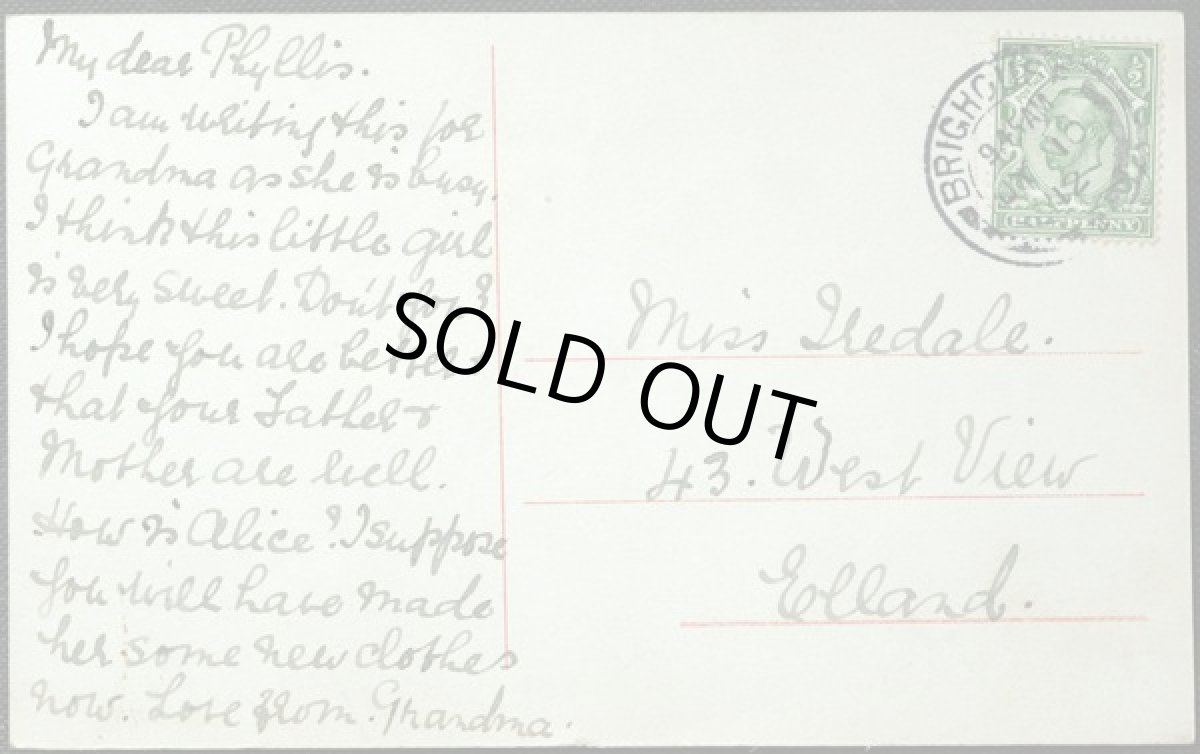 My dear Phyllis.
I am writing this for
Grandma as she is busy.
I think this little girl
is very sweet. Don't you?
I hope you are better &
that your Father &
Mother are well.
How is Alice? I suppose
you will have made
her some new clothes
now. Love from Grandma.
BRIGHOUSE
HALFPENNY
Miss Iredale.
43. West View
Elland.
SOLD OUT